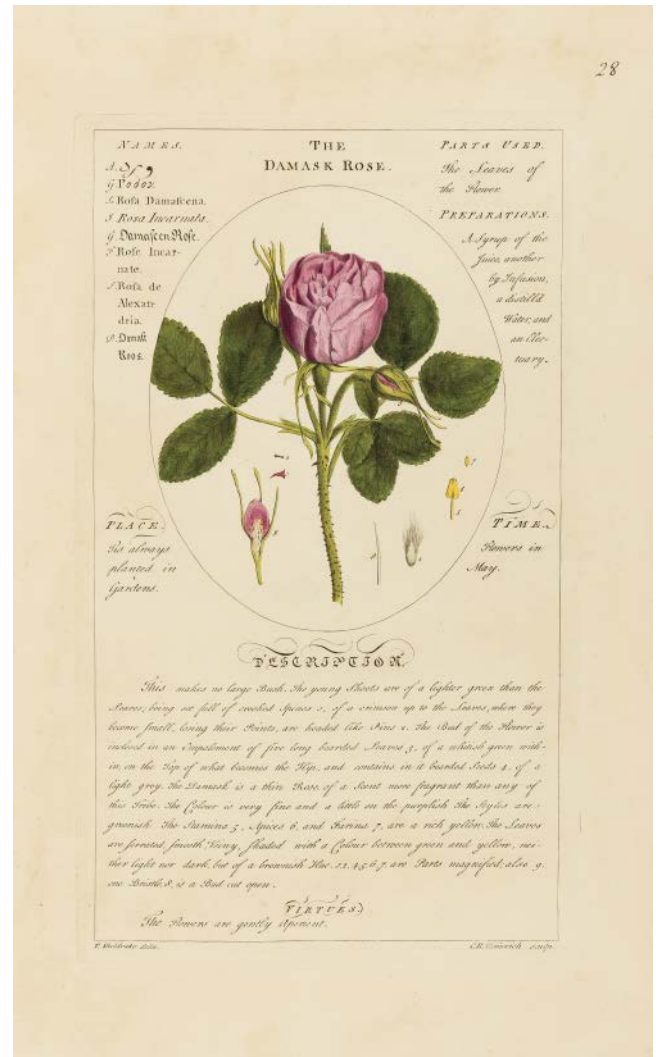 28
NAMES.
G. Ῥοδον.
L. Rosa Damascena.
I. Rosa Incarnata.
G. Damascen Rose.
F. Rose Incar-
nate.
S. Rosa de
Alexan-
dria.
D. Damask
Roos.
THE
DAMASK ROSE.
PARTS USED.
The Leaves of
the Flower.
PREPARATIONS.
A Syrup of the
Juice, another
by Infusion,
a distill'd
Water, and
an Elec-
tuary.
PLACE.
Tis always
planted in
Gardens.
TIME.
Flowers in
May.
DESCRIPTION.
This makes no large Bush. The young Shoots are of a lighter green than the
Leaves, being set full of crooked Spines 2, of a crimson up to the Leaves, where they
become small, losing their Points, are headed like Pins 1. The Bud of the Flower is
inclosed in an Empalement of five long bearded Leaves 3, of a whitish green with-
in, on the Top of what becomes the Hip, and contains in it bearded Seeds 4, of a
light grey. The Damask is a thin Rose, of a Scent more fragrant than any of
this Tribe. The Colour is very fine and a little on the purplish The Styles are
greenish. The Stamina 5, Apices 6, and Farina 7, are a rich yellow. The Leaves
are serrated, smooth, Viewy, shaded with a Colour between green and yellow, nei-
ther light nor dark, but of a brownish Hue. 1.2.4.5.6.7. are Parts magnified; also 9.
one Bristle. 8. is a Bud cut open.
VIRTUES.
The Flowers are gently Aperient.
T. Sheldrake delin.
C.H. Hemerich sculp.